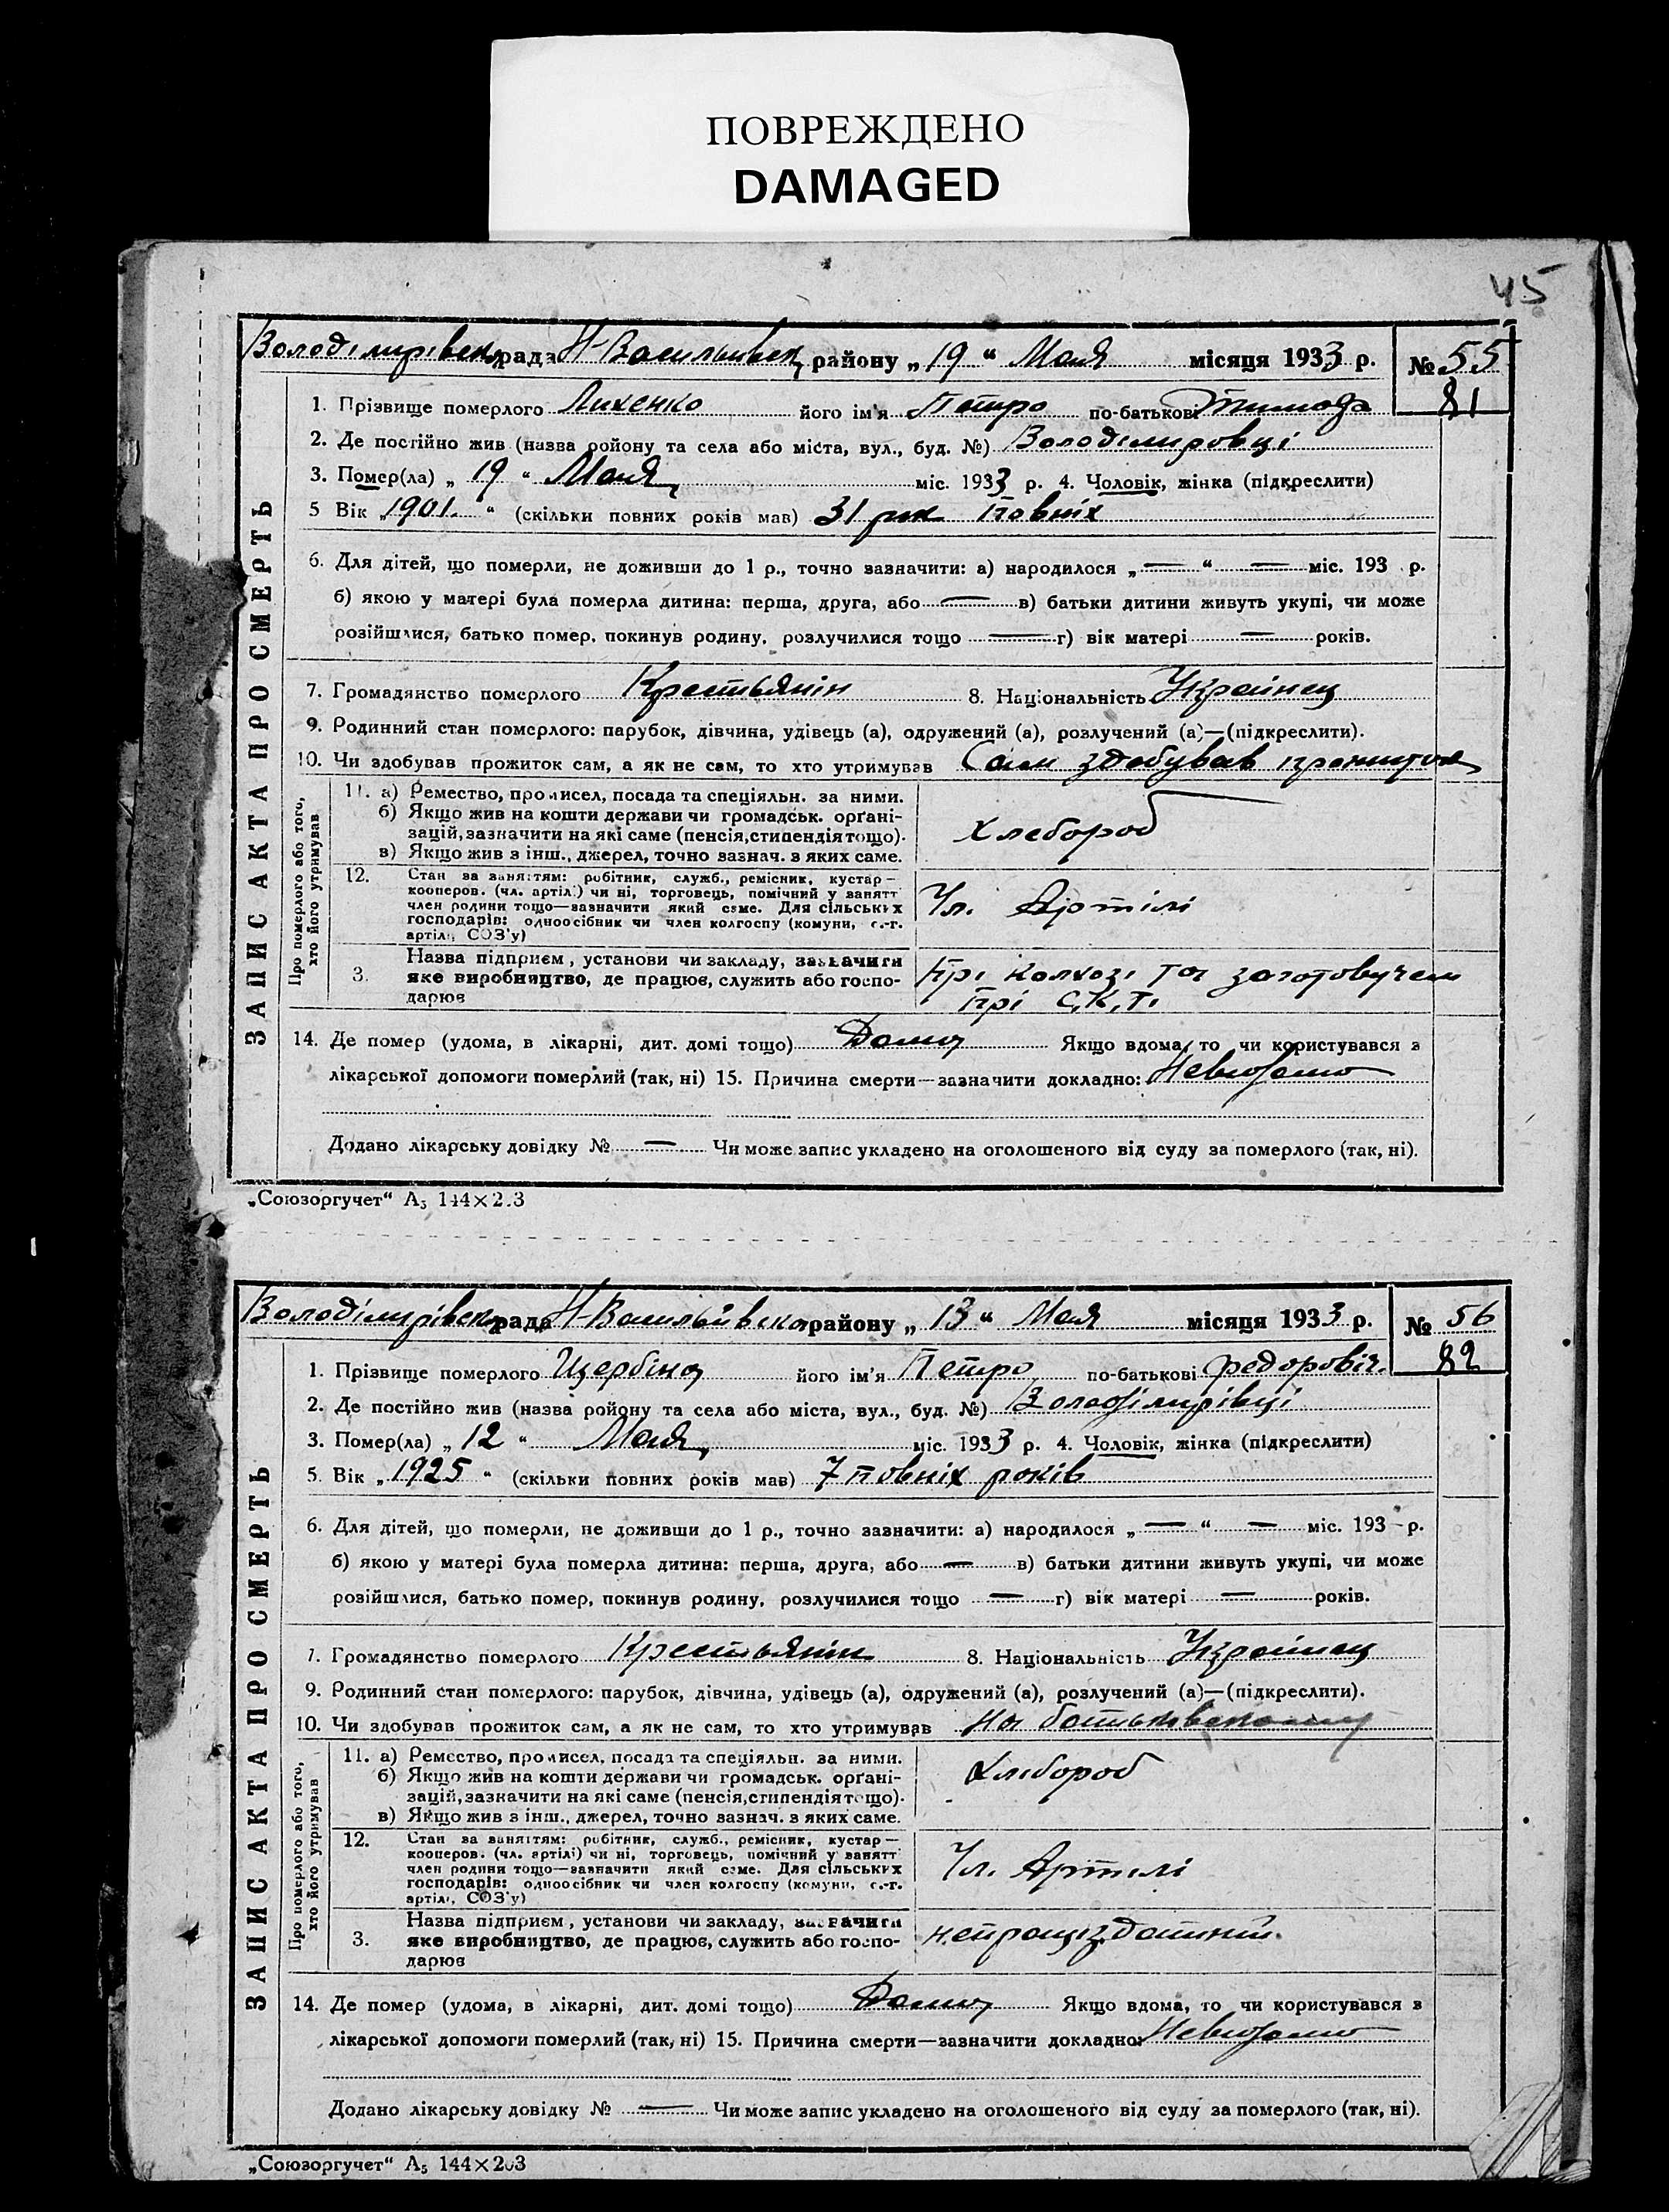 ПОВРЕЖДЕНО
DAMAGED
45
ЗАПИС АКТА ПРО СМЕРТЬ
Володімирівська рада Н-Васильівськ району „19“ Мая місяця 1933 р. № 55
81
1. Прізвище померлого Лихенко його ім'я Петро по-батькові
2. Де постійно жив (назва району та села або міста, вул., буд. №) Володімировці
3. Помер(ла) „19“ Мая міс. 1933 р. 4. Чоловік, жінка (підкреслити)
5 Вік „1901.“ (скільки повних років мав) 31 рік повніх
6. Для дітей, що померли, не доживши до 1 р., точно зазначити: а) народилося „—“ — міс. 193 р.
б) якою у матері була померла дитина: перша, друга, або — в) батьки дитини живуть укупі, чи може
розійшлися, батько помер, покинув родину, розлучилися тощо — г) вік матері — років.
7. Громадянство померлого Крестьянін 8. Національність Украінец
9. Родинний стан померлого: парубок, дівчина, удівець (а), одружений (а), розлучений (а)—(підкреслити).
10. Чи здобував прожиток сам, а як не сам, то хто утримував Сам здобував прожиток
Про померлого або того, хто його утримував
11. а) Ремество, промисел, посада та спеціяльн. за ними.
б) Якщо жив на кошти держави чи громадськ. орґані-
зацій, зазначити на які саме (пенсія, стипендія тощо).
в) Якщо жив з інш., джерел, точно зазнач. з яких саме.
хлебороб
12. Стан за заняттям: робітник, служб., ремісник, кустар—
кооперов. (чл. артілі) чи ні, торговець, помічний у занятт
член родини тощо—зазначити який саме. Для сільських
господарів: одноосібник чи член колгоспу (комуни, с.-г.
артілі, СОЗ'у)
Чл. Артілі
3. Назва підприєм, установи чи закладу, зазначити
яке виробництво, де працює, служить або госпо-
дарює
Прі колхозі та заготовучем
прі С.К.Т.
14. Де помер (удома, в лікарні, дит. домі тощо) Дома Якщо вдома, то чи користувався з
лікарської допомоги померлий (так, ні) 15. Причина смерти—зазначити докладно: Невідомо
Додано лікарську довідку № — Чи може запис укладено на оголошеного від суду за померлого (так, ні).
„Союзоргучет“ А₅ 144×203
ЗАПИС АКТА ПРО СМЕРТЬ
Володімирівська рада Н-Васильівська району „13“ Мая місяця 1933 р. № 56
82
1. Прізвище померлого Щербіна його ім'я Петро по-батькові Федоровіч.
2. Де постійно жив (назва району та села або міста, вул., буд. №) Володімирівці
3. Помер(ла) „12“ Мая міс. 1933 р. 4. Чоловік, жінка (підкреслити)
5. Вік „1925“ (скільки повних років мав) 7 повніх років
6. Для дітей, що померли, не доживши до 1 р., точно зазначити: а) народилося „—“ — міс. 193 р.
б) якою у матері була померла дитина: перша, друга, або — в) батьки дитини живуть укупі, чи може
розійшлися, батько помер, покинув родину, розлучилися тощо — г) вік матері — років.
7. Громадянство померлого Крестьянін 8. Національність Украінец
9. Родинний стан померлого: парубок, дівчина, удівець (а), одружений (а), розлучений (а)—(підкреслити).
10. Чи здобував прожиток сам, а як не сам, то хто утримував На батьковському
Про померлого або того, хто його утримував
11. а) Ремество, промисел, посада та спеціяльн. за ними.
б) Якщо жив на кошти держави чи громадськ. орґані-
зацій, зазначити на які саме (пенсія, стипендія тощо).
в) Якщо жив з інш., джерел, точно зазнач. з яких саме.
хлібороб
12. Стан за заняттям: робітник, служб., ремісник, кустар—
кооперов. (чл. артілі) чи ні, торговець, помічний у занятт
член родини тощо—зазначити який саме. Для сільських
господарів: одноосібник чи член колгоспу (комуни, с.-г.
артілі, СОЗ'у)
Чл. Артілі
3. Назва підприєм, установи чи закладу, зазначити
яке виробництво, де працює, служить або госпо-
дарює
непрацездатний.
14. Де помер (удома, в лікарні, дит. домі тощо) Дома Якщо вдома, то чи користувався з
лікарської допомоги померлий (так, ні) 15. Причина смерти—зазначити докладно: Невідомо
Додано лікарську довідку № — Чи може запис укладено на оголошеного від суду за померлого (так, ні).
„Союзоргучет“ А₅ 144×203